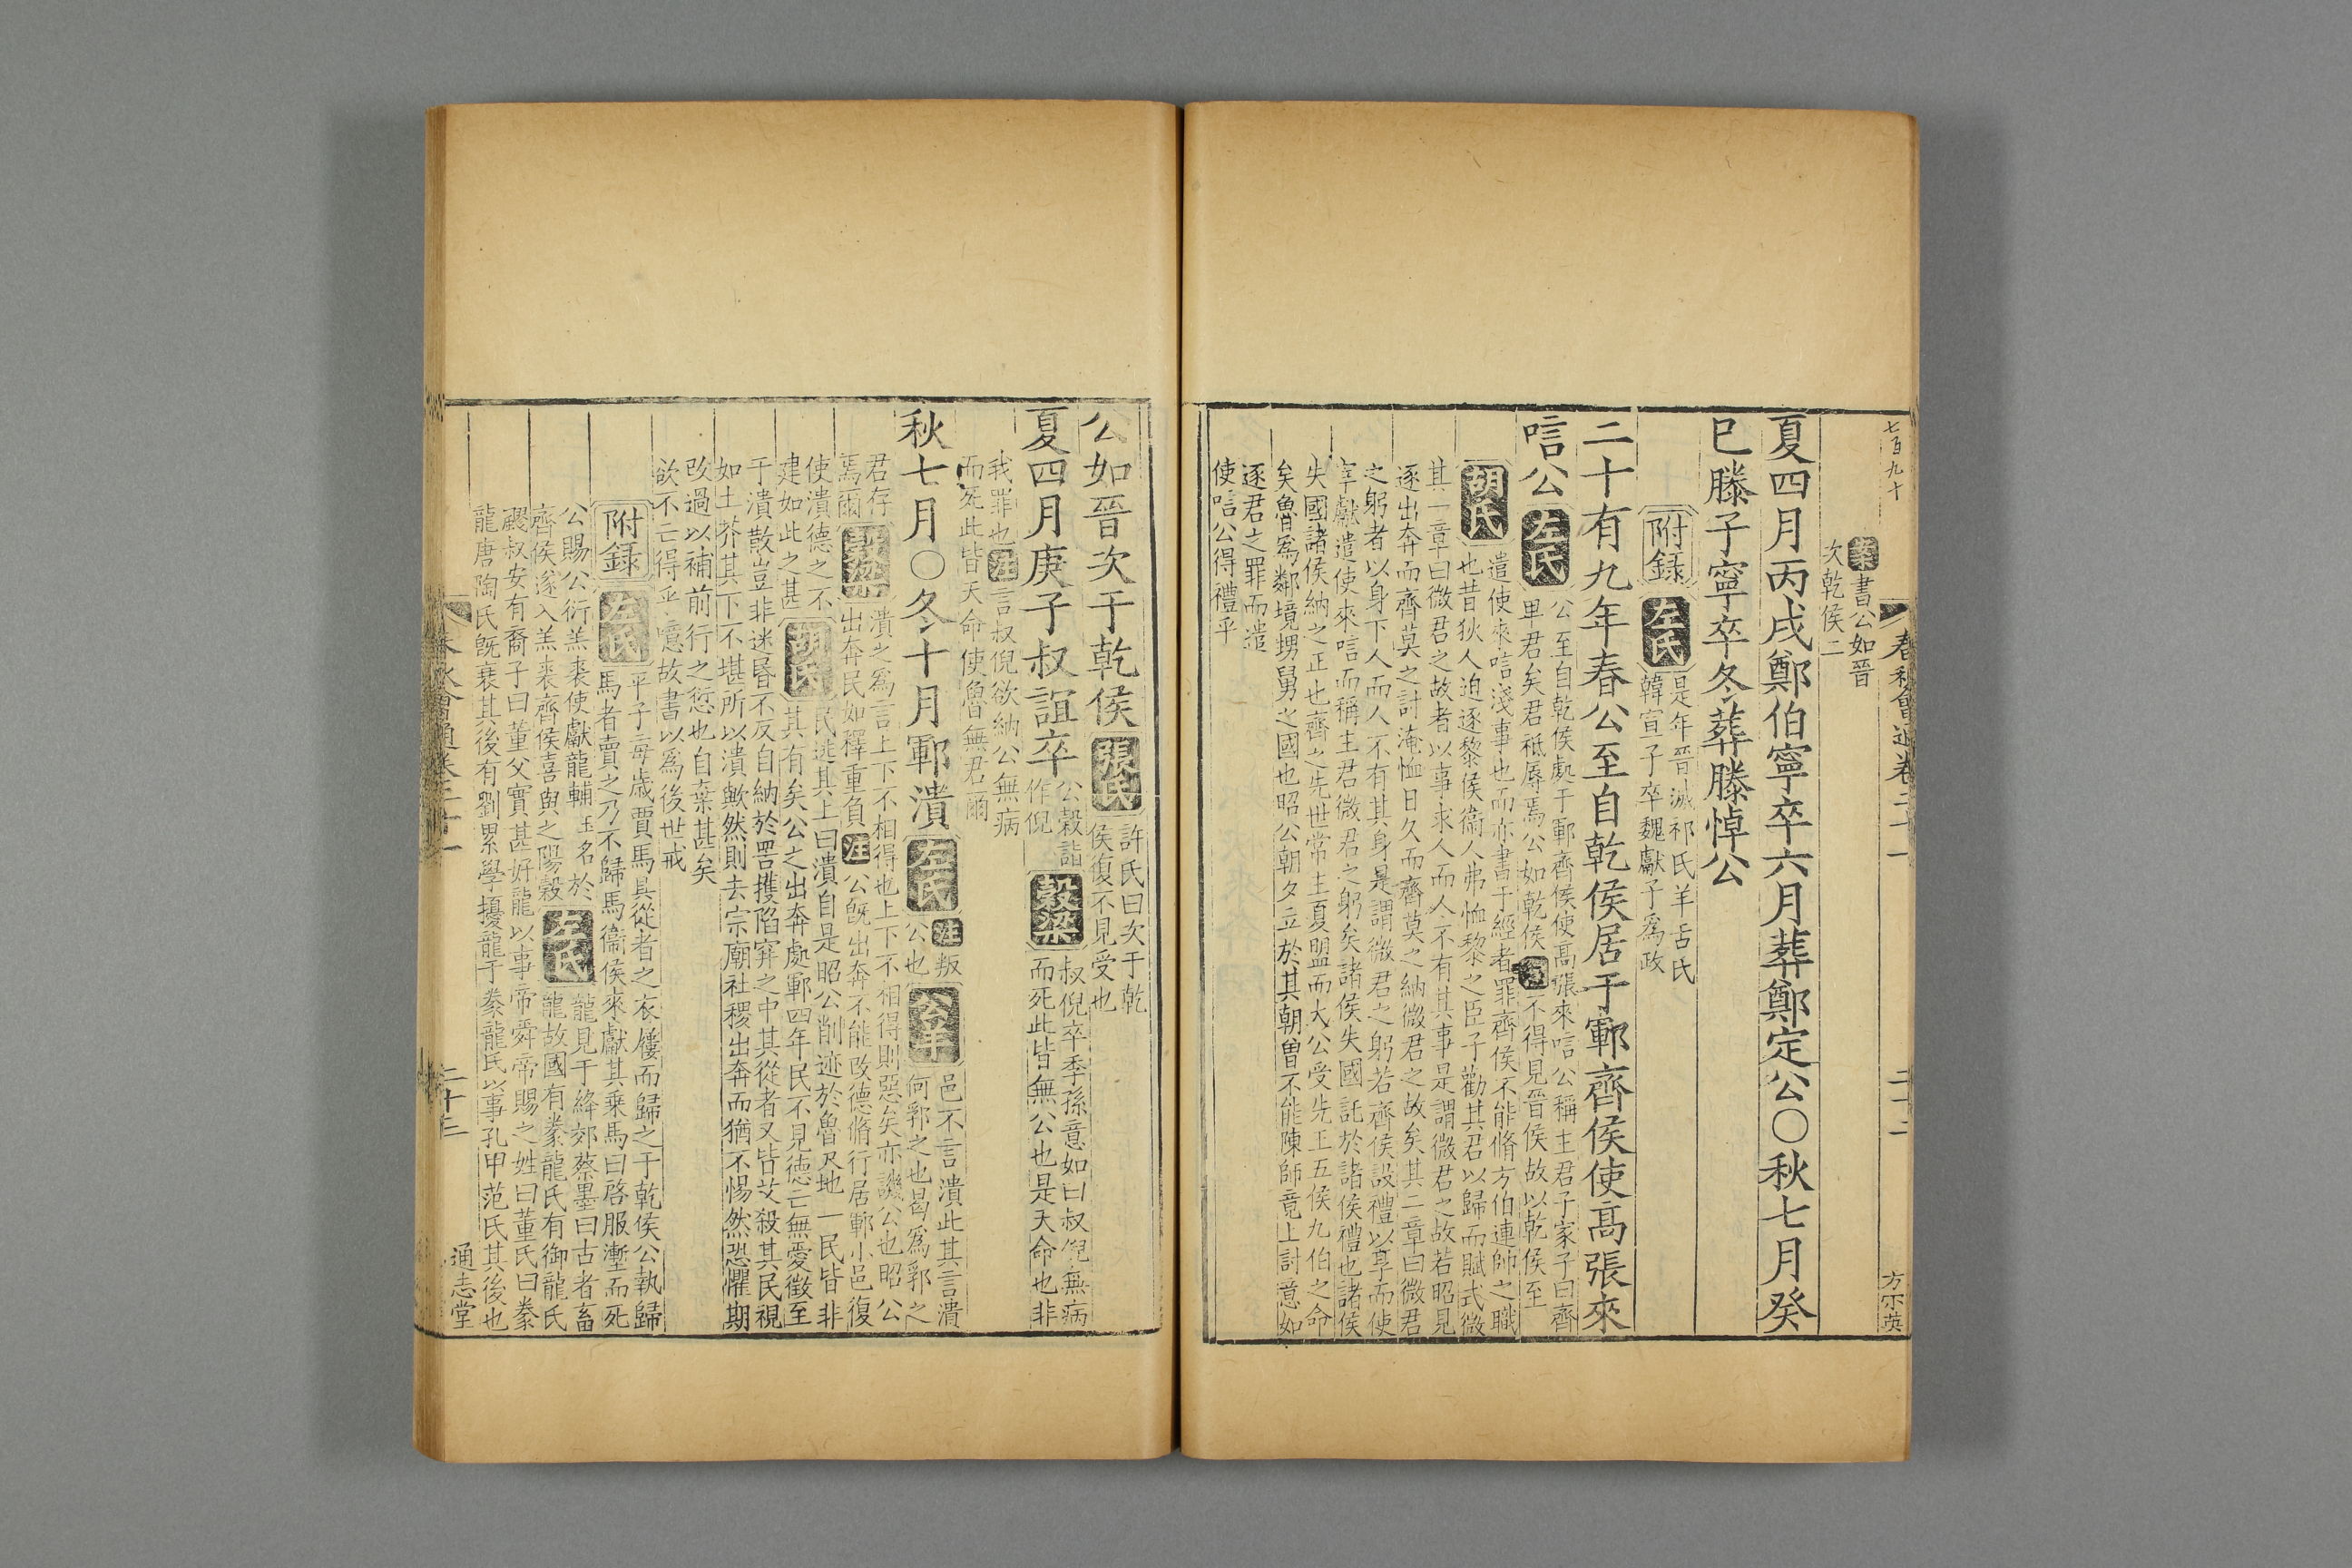 七百九十
春秋會通卷二十一
二十二
方宗英
案書公如晉
次乾侯二
夏四月丙戌鄭伯寧卒六月葬鄭定公〇秋七月癸
巳滕子寧卒冬葬滕悼公
附錄 左氏 是年晉滅祁氏羊舌氏
韓宣子卒魏獻子爲政
二十有九年春公至自乾侯居于鄆齊侯使高張來
唁公 左氏 公至自乾侯處于鄆齊侯使高張來唁公稱主君子家子曰齊
卑君矣君祗辱焉公如乾侯 不得見晉侯故以乾侯至
胡氏 遣使來唁淺事也而亦書于經者罪齊侯不能脩方伯連帥之職
也昔狄人迫逐黎侯衞人弗恤黎之臣子勸其君以歸而賦式微
其一章曰微君之故者以事求人而人不有其事是謂微君之故若昭見
逐出奔而齊莫之討淹恤日久而齊莫之納微君之故矣其二章曰微君
之躬者以身下人而人不有其身是謂微君之躬若齊侯設禮以享而使
宰獻遣使來唁而稱主君微君之躬矣諸侯失國託於諸侯禮也諸侯
失國諸侯納之正也齊之先世常主夏盟而大公受先王五侯九伯之命
矣魯爲鄰境甥舅之國也昭公朝夕立於其朝曽不能陳師竟上討意如
逐君之罪而遣
使唁公得禮乎
公如晉次于乾侯 張氏 許氏曰次于乾
侯復不見受也
夏四月庚子叔詣卒 公穀詣
作倪 穀梁 叔倪卒季孫意如曰叔倪無病
而死此皆無公也是天命也非
我罪也 注 言叔倪欲納公無病
而死此皆天命使魯無君爾
秋七月〇冬十月鄆潰 左氏 注 叛
公也 公羊 邑不言潰此其言潰
何郛之也曷爲郛之
君存
焉爾 穀梁 潰之爲言上下不相得也上下不相得則惡矣亦譏公也昭公
出奔民如釋重負 注 公旣出奔不能改德脩行居鄆小邑復
使潰德之不
建如此之甚 胡氏 民逃其上曰潰自是昭公削迹於魯尺地一民皆非
其有矣公之出奔處鄆四年民不見德亡無愛徵至
于潰散豈非迷昬不反自納於罟擭陷穽之中其從者又皆艾殺其民視
如土芥其下不堪所以潰歟然則去宗廟社稷出奔而猶不惕然恐懼期
改過以補前行之愆也自棄甚矣
欲不亡得乎意故書以爲後世戒
附錄 左氏 平子每歲賈馬具從者之衣屨而歸之于乾侯公執歸
馬者賣之乃不歸馬衞侯來獻其乘馬曰啓服塹而死
公賜公衍羔裘使獻龍輔玉名於
齊侯遂入羔裘齊侯喜與之陽穀 左氏 龍見于絳郊蔡墨曰古者畜
龍故國有豢龍氏有御龍氏
飂叔安有裔子曰董父實甚好龍以事帝舜帝賜之姓曰董氏曰豢
龍唐陶氏旣衰其後有劉累學擾龍于豢龍氏以事孔甲范氏其後也
春秋會通卷二十一
二十三
通志堂